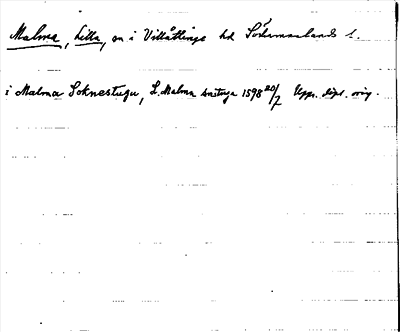 Malma, Lilla, sn i Villåttinge hd Södermanlands l.
i Malma Soknestugu, L. Malma snstuga 1598 20/7 Upps. dipl. orig.